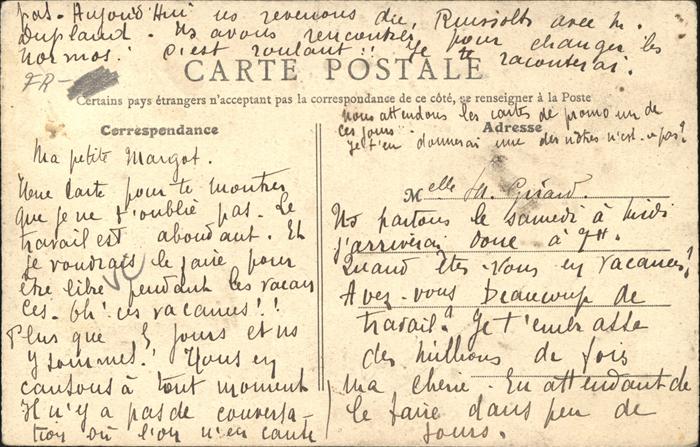 pas. Aujourd'Hui ns revenons de, avec M.
Dupland. Ns avons rencontrer pour changer les
normos! C'est roulant!! Je te raconterai.
CARTE POSTALE
FR-
Certains pays étrangers n'acceptant pas la correspondance de ce côté, se renseigner à la Poste
Nous attendons les cartes de promo un de
ces jours.
Je t'en donnerai une des nôtres n'est-ce pas?
Correspondance
Adresse
Ma petite Margot.
Une carte pour te montrer
que je ne t'oublie pas. Le
travail est abondant. Et
je voudrais le faire pour
être libre pendant les vacan
ces. Oh! ces vacances!!
Plus que 5 jours et ns
y sommes! Nous en
causons à tout moment
Il n'y a pas de conversa-
tion où l'on n'en cause
Melle M. Girard.
Ns partons le samedi à midi
j'arriverai donc à 7H.
Quand êtes-vous en vacances?
Avez-vous beaucoup de
travail? Je t'embrasse
des millions de fois
ma chérie. En attendant de
le faire dans peu de
jours.